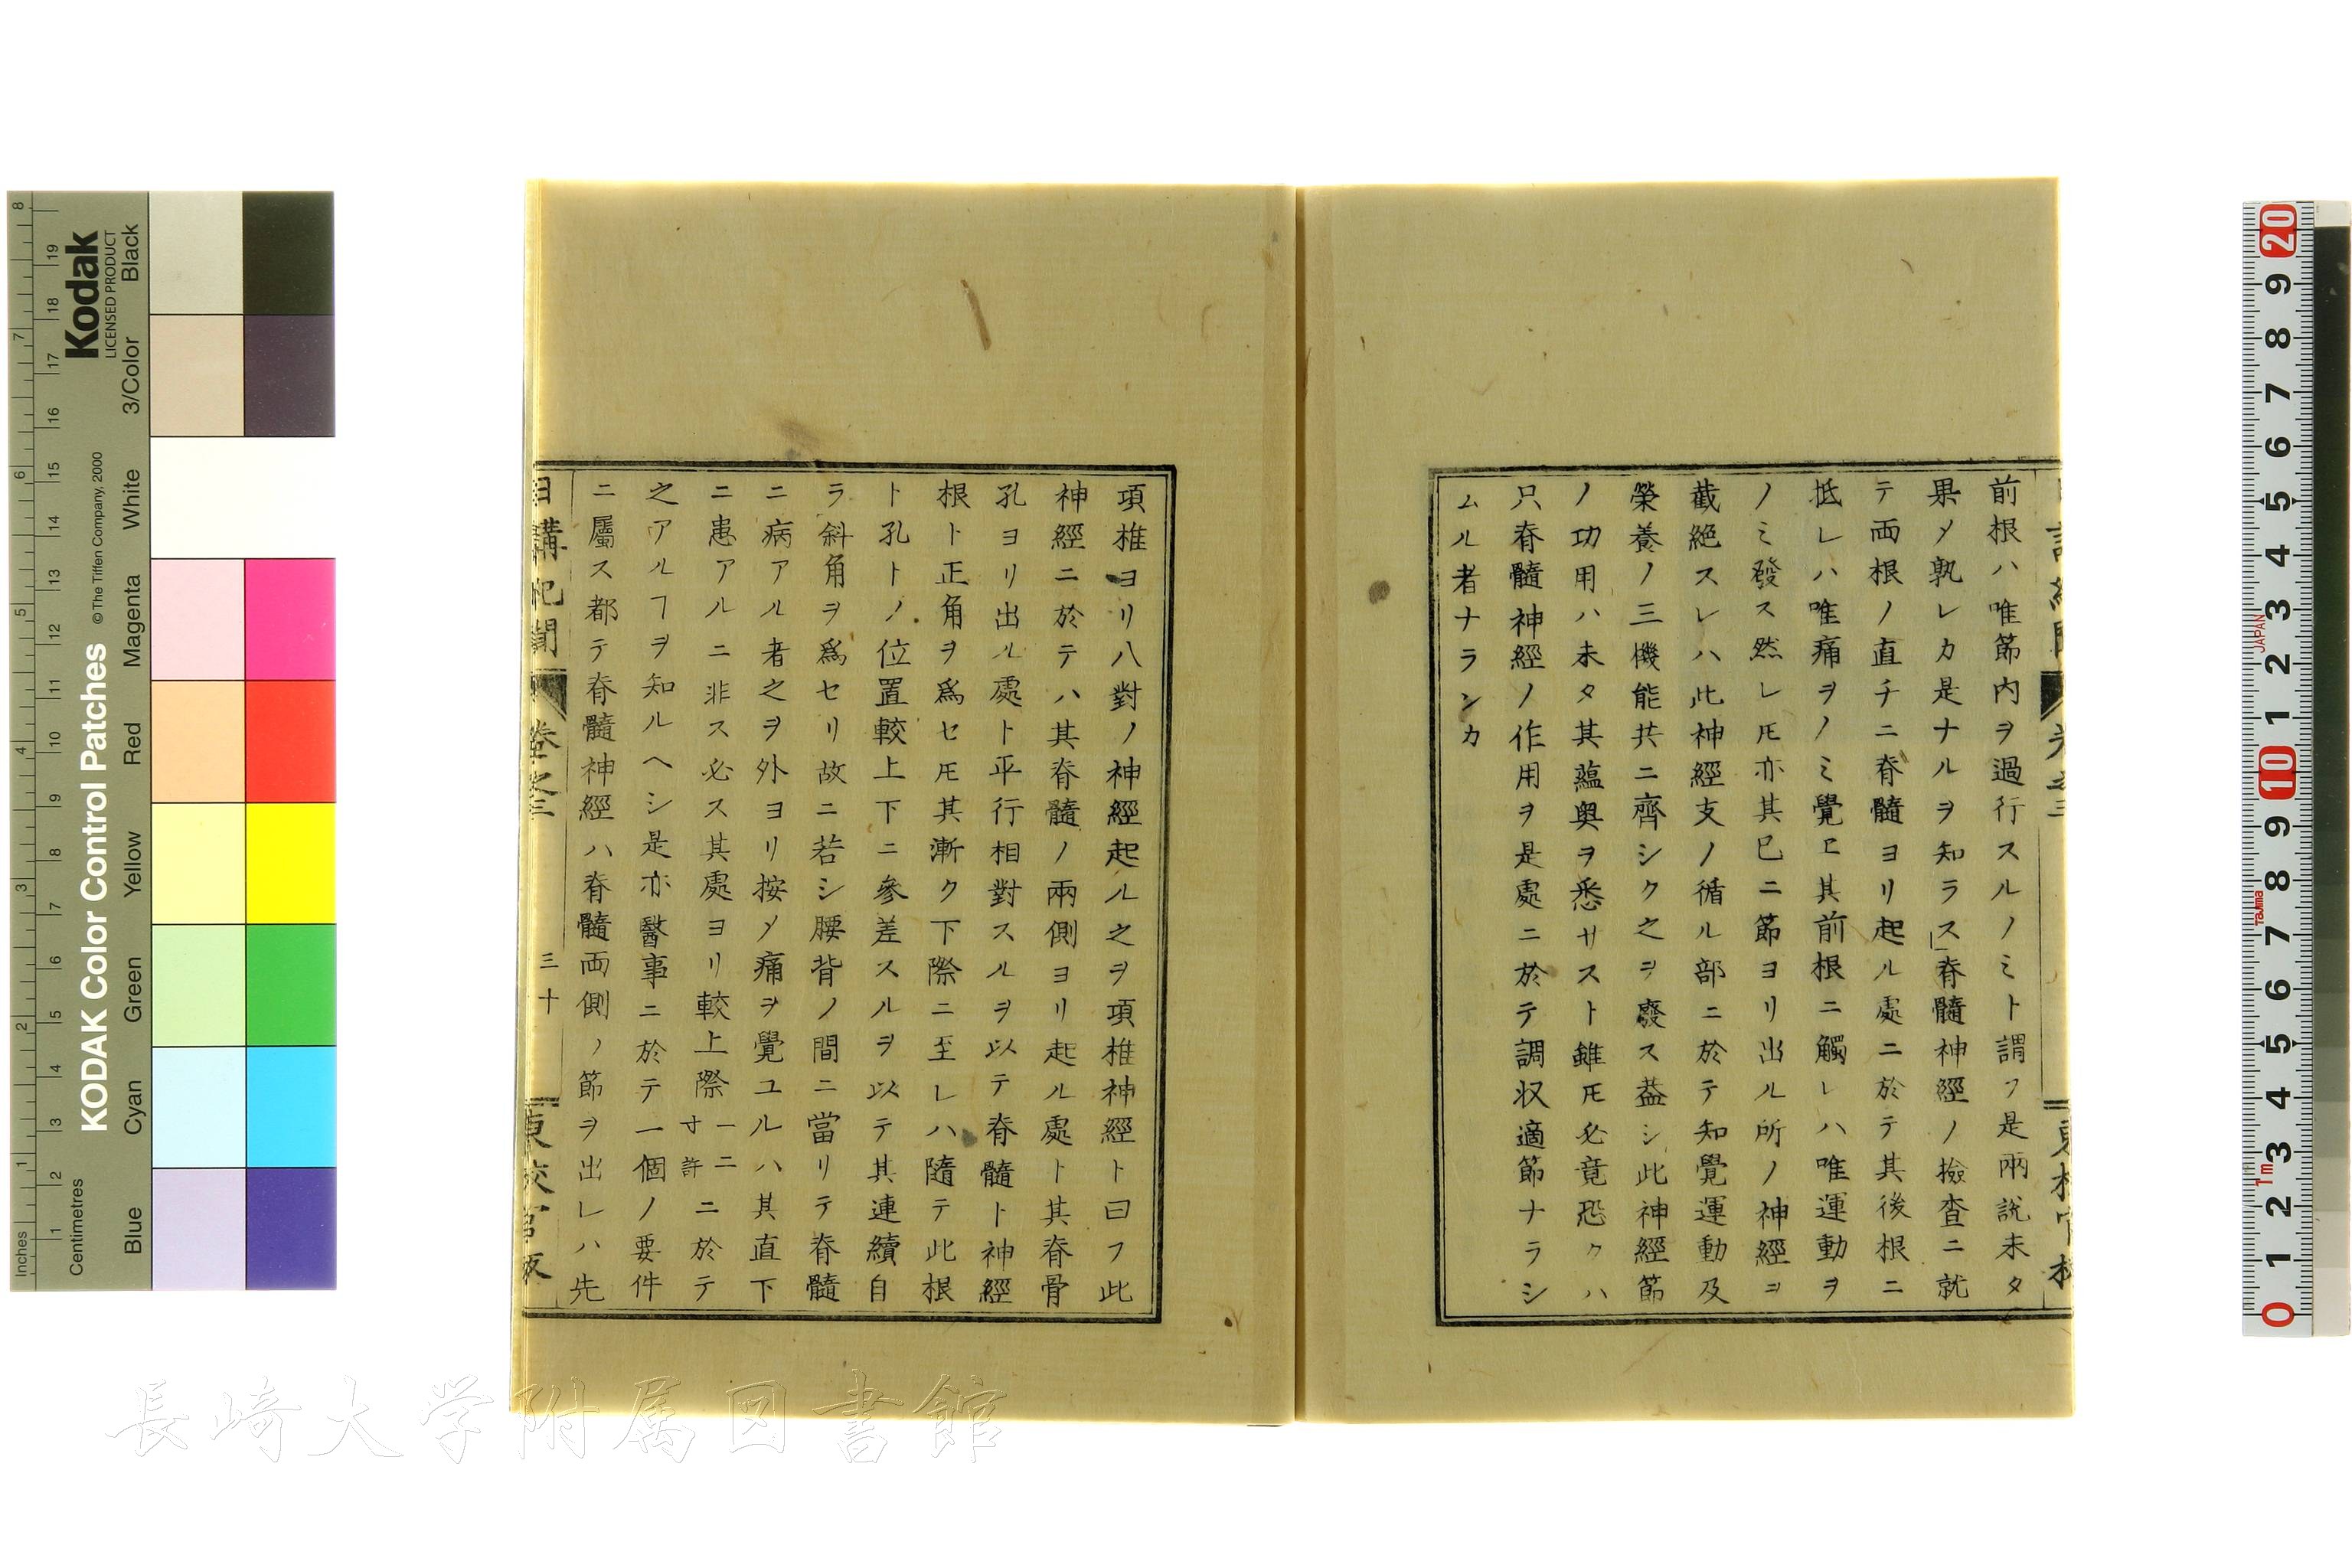 前根ハ唯節内ヲ過行スルノミト謂フ是兩説未タ
果〆孰レカ是ナルヲ知ラス」脊髓神經ノ撿査ニ就
テ両根ノ直チニ脊髓ヨリ起ル處ニ於テ其後根ニ
抵レハ唯痛ヲノミ覺ヱ其前根ニ觸レハ唯運動ヲ
ノミ發ス然レ𪜈亦其已ニ節ヨリ出ル所ノ神經ヲ
截絶スレハ此神經支ノ循ル部ニ於テ知覺運動及
榮養ノ三機能共ニ齊シク之ヲ廢ス葢シ此神經節
ノ功用ハ未タ其蘊奥ヲ悉サスト雖𪜈必竟恐クハ
只脊髓神經ノ作用ヲ是處ニ於テ調収適節ナラシ
ムル者ナランカ
項椎ヨリ八對ノ神經起ル之ヲ項椎神經ト曰フ此
神經ニ於テハ其脊髓ノ兩側ヨリ起ル處ト其脊骨
孔ヨリ出ル處ト平行相對スルヲ以テ脊髓ト神經
根ト正角ヲ爲セ𪜈其漸ク下際ニ至レハ隨テ此根
ト孔トノ位置較上下ニ參差スルヲ以テ其連續自
ラ斜角ヲ爲セリ故ニ若シ腰背ノ間ニ當リテ脊髓
ニ病アル者之ヲ外ヨリ按〆痛ヲ覺ユルハ其直下
ニ患アルニ非ス必ス其處ヨリ較上際一二寸許ニ於テ
之アルヿヲ知ルヘシ是亦醫事ニ於テ一個ノ要件
ニ屬ス都テ脊髓神經ハ脊髓両側ノ節ヲ出レハ先
日講紀聞 卷之三 三十 東校官版
KODAK Color Control Patches
Kodak
LICENSED PRODUCT
© The Tiffen Company, 2000
Inches
Centimetres
Blue Cyan Green Yellow Red Magenta White 3/Color Black
JAPAN
Tajima
1m
長崎大学附属図書館